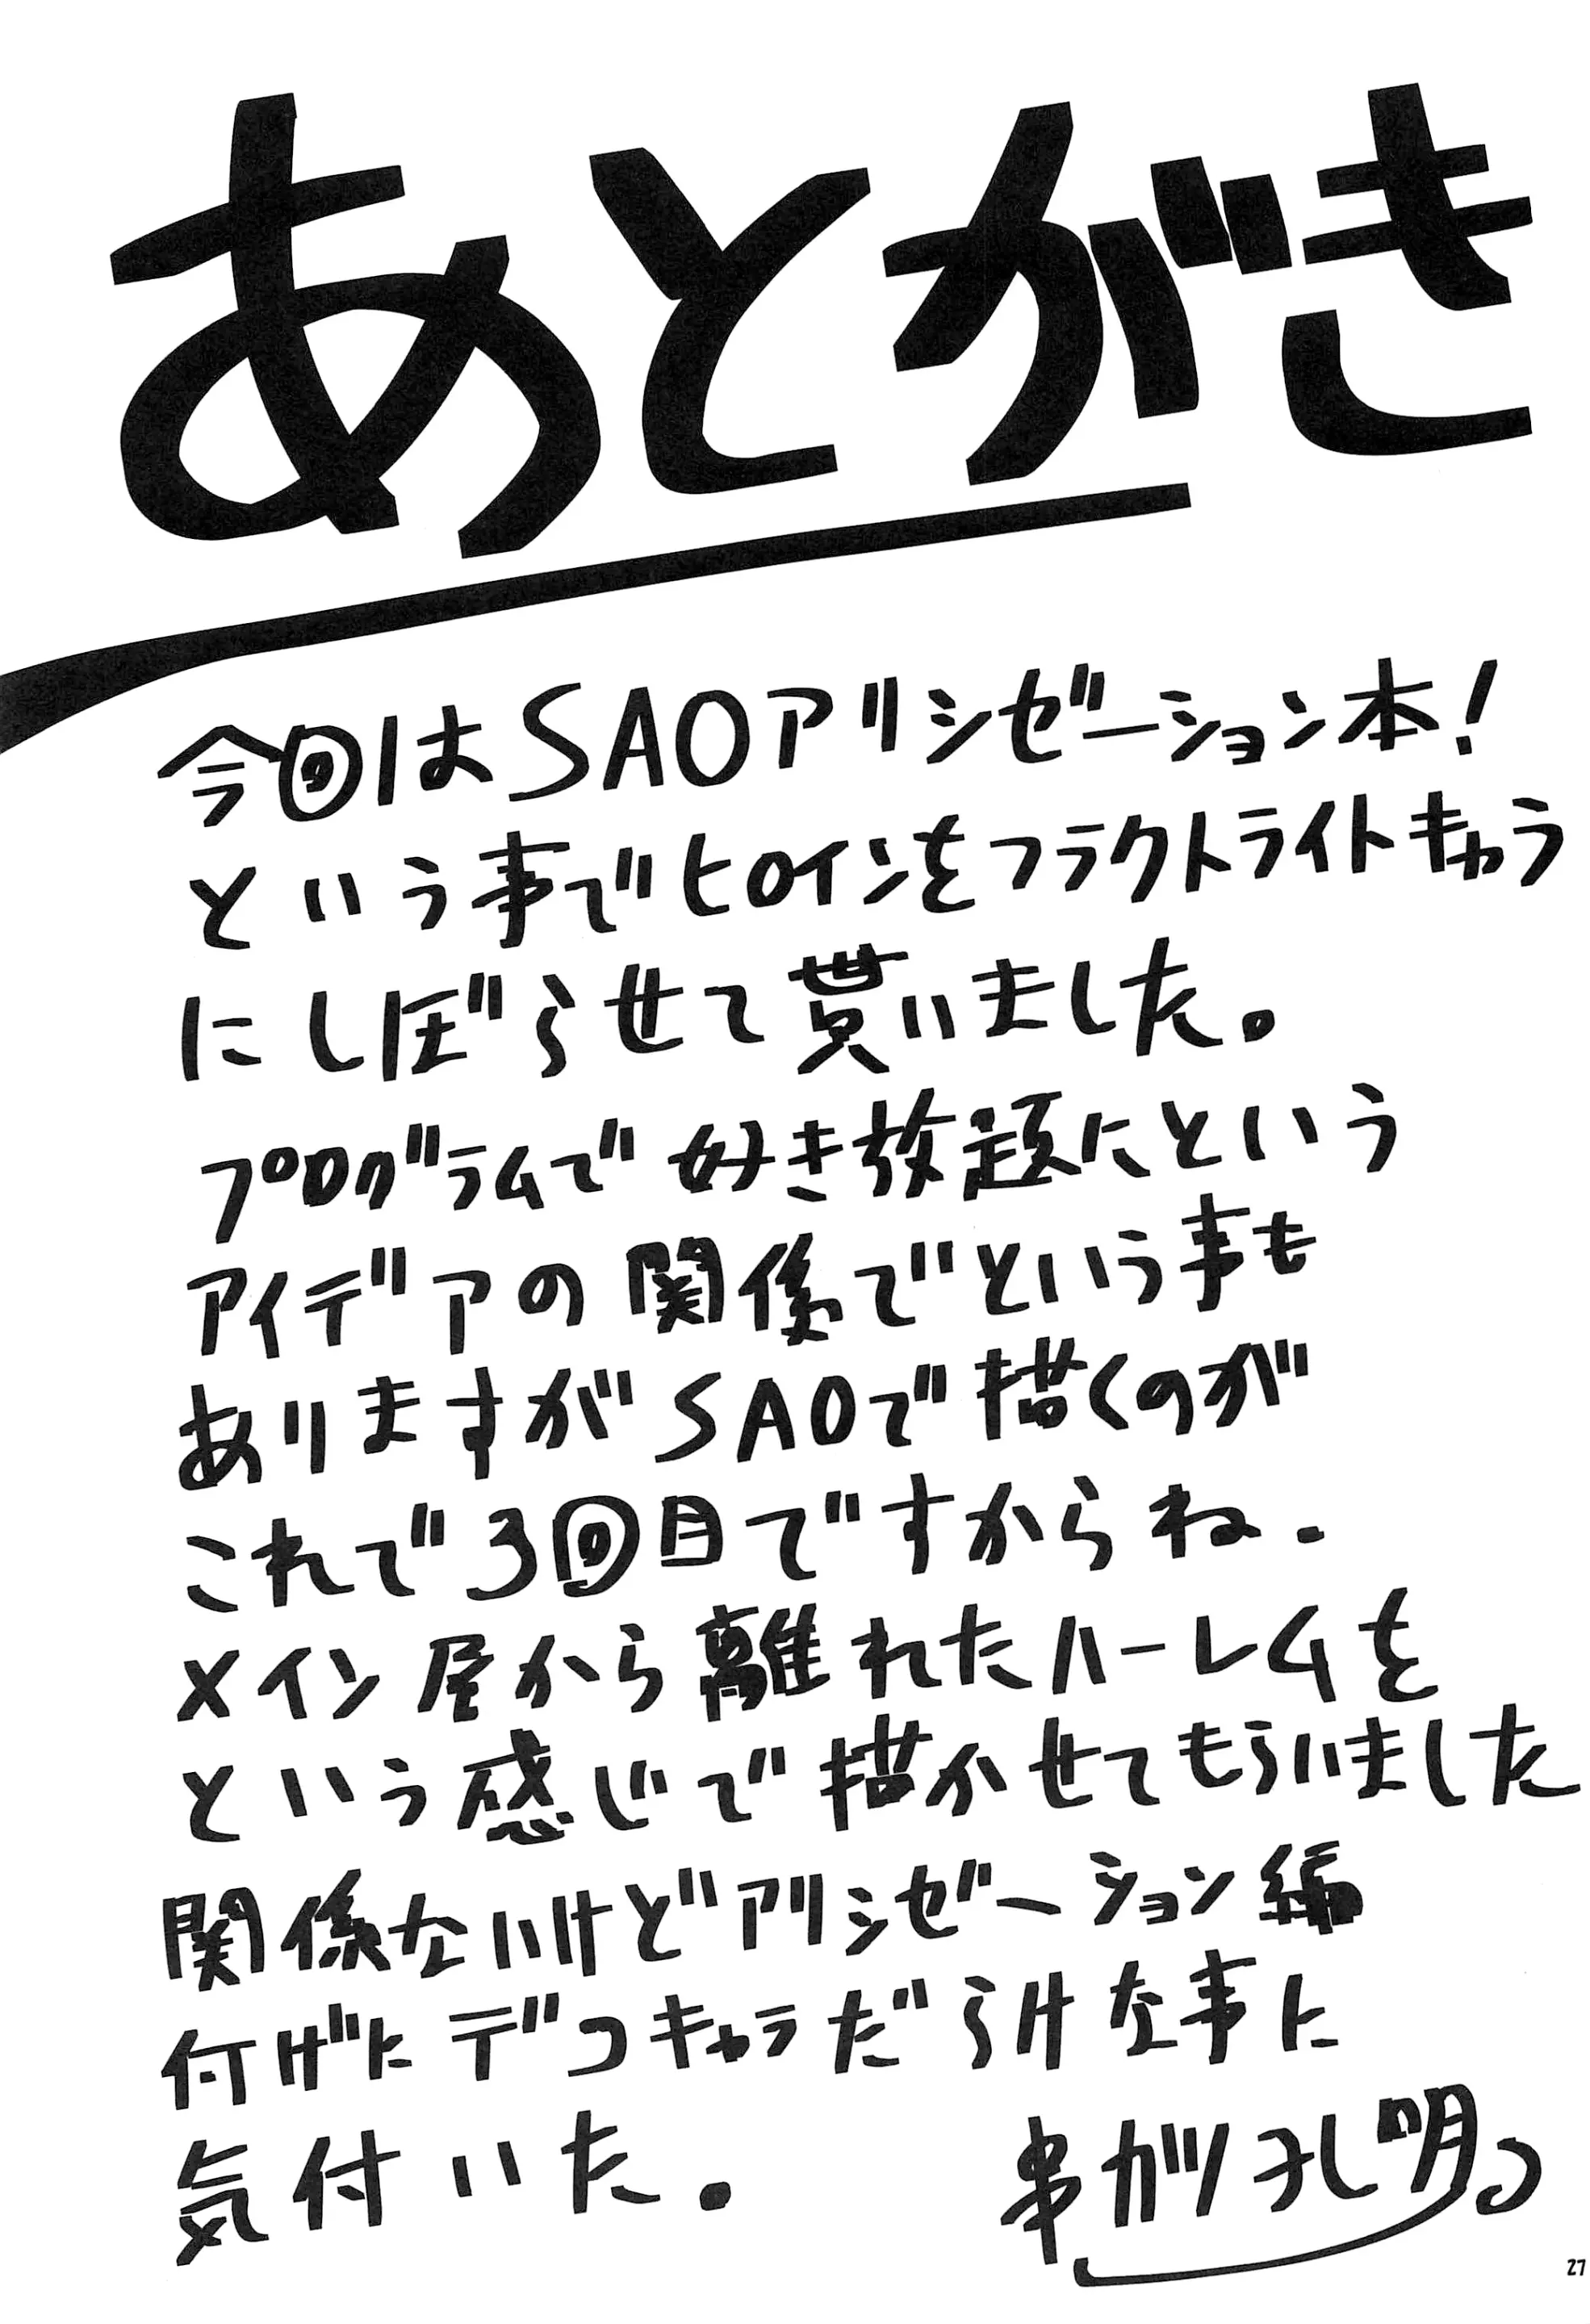 あとがき
今回はSAOアリシゼーション本!
という事でヒロインをフラクトライトキャラ
にしぼらせて貰いました。
プログラムで好き放題にという
アイデアの関係でという事も
ありますがSAOで描くのが
これで3回目ですからね.
メイン屋から離れたハーレムを
という感じで描かせてもらいました
関係ないけどアリシゼーション編
付けにデコキャラだらけな事に
気付いた.
串カツ孔明
27